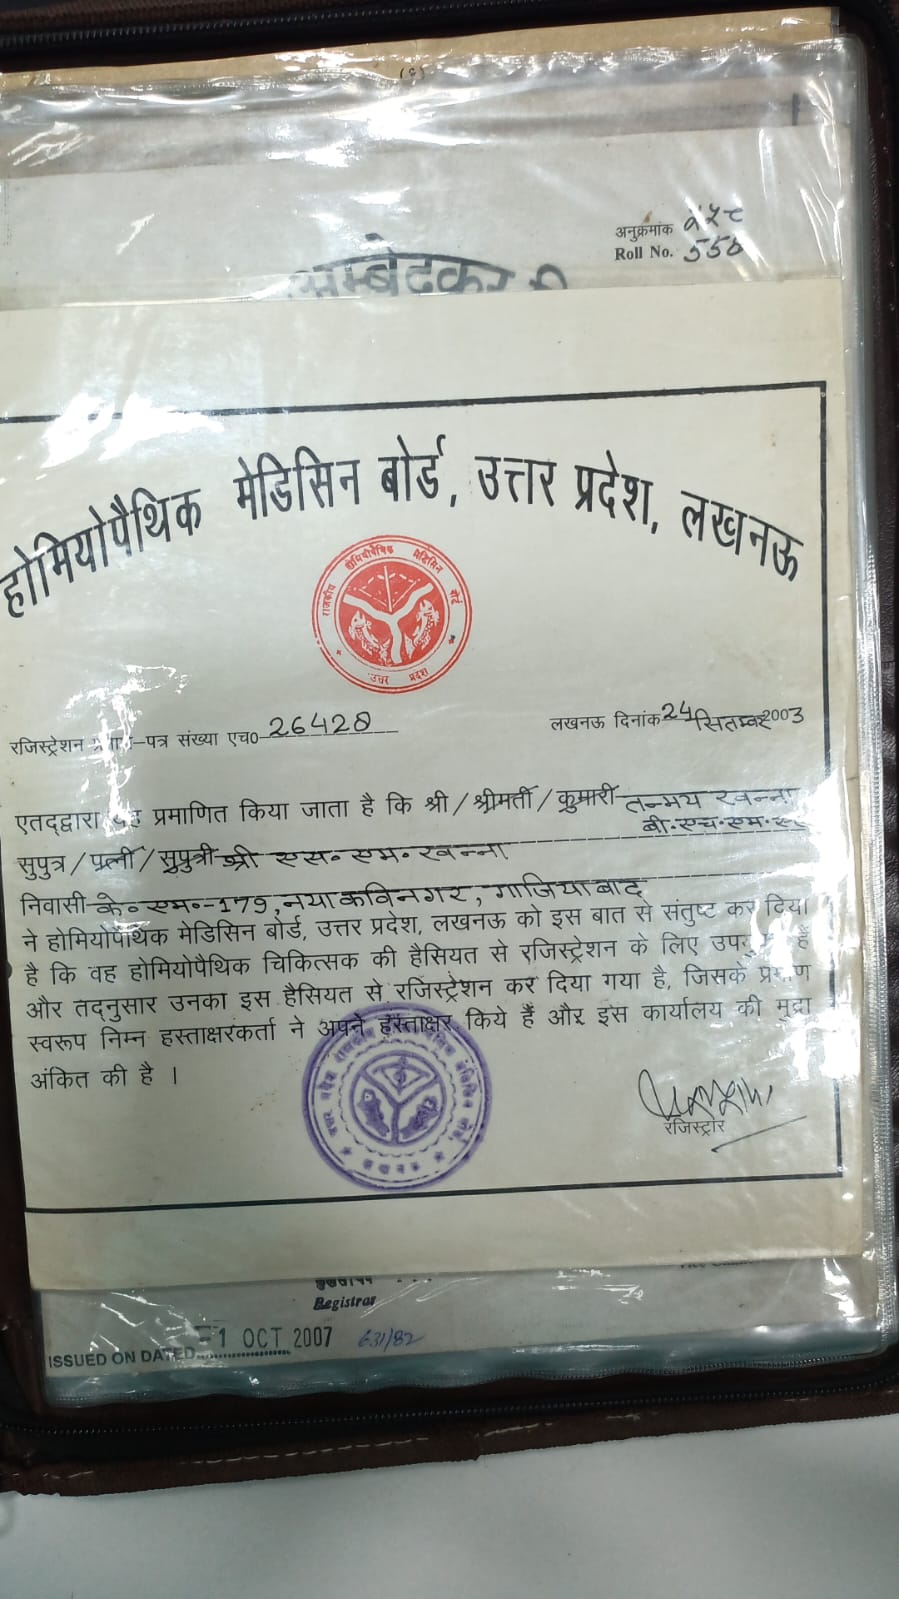 अनुक्रमांक
Roll No. 558
अम्बेदकर
होमियोपैथिक मेडिसिन बोर्ड, उत्तर प्रदेश, लखनऊ
राजकीय होमियोपैथिक मेडिसिन बोर्ड
उत्तर प्रदेश
रजिस्ट्रेशन -पत्र संख्या एच० 26428
लखनऊ दिनांक 24 सितम्बर 2003
एतद्द्वारा यह प्रमाणित किया जाता है कि श्री / श्रीमती / कुमारी तन्मय खन्ना
बी.एच.एम.एस
सुपुत्र / पत्नी / सुपुत्री श्री एस० एम० खन्ना
निवासी के० एम०-179, नया कविनगर, गाजियाबाद
ने होमियोपैथिक मेडिसिन बोर्ड, उत्तर प्रदेश, लखनऊ को इस बात से संतुष्ट कर दिया
है कि वह होमियोपैथिक चिकित्सक की हैसियत से रजिस्ट्रेशन के लिए उपयुक्त हैं
और तद्नुसार उनका इस हैसियत से रजिस्ट्रेशन कर दिया गया है, जिसके प्रमाण
स्वरूप निम्न हस्ताक्षरकर्ता ने अपने हस्ताक्षर किये हैं और इस कार्यालय की मुद्रा
अंकित की है ।
रजिस्ट्रार
लखनऊ
Registrar
ISSUED ON DATED 1 OCT 2007 631/82